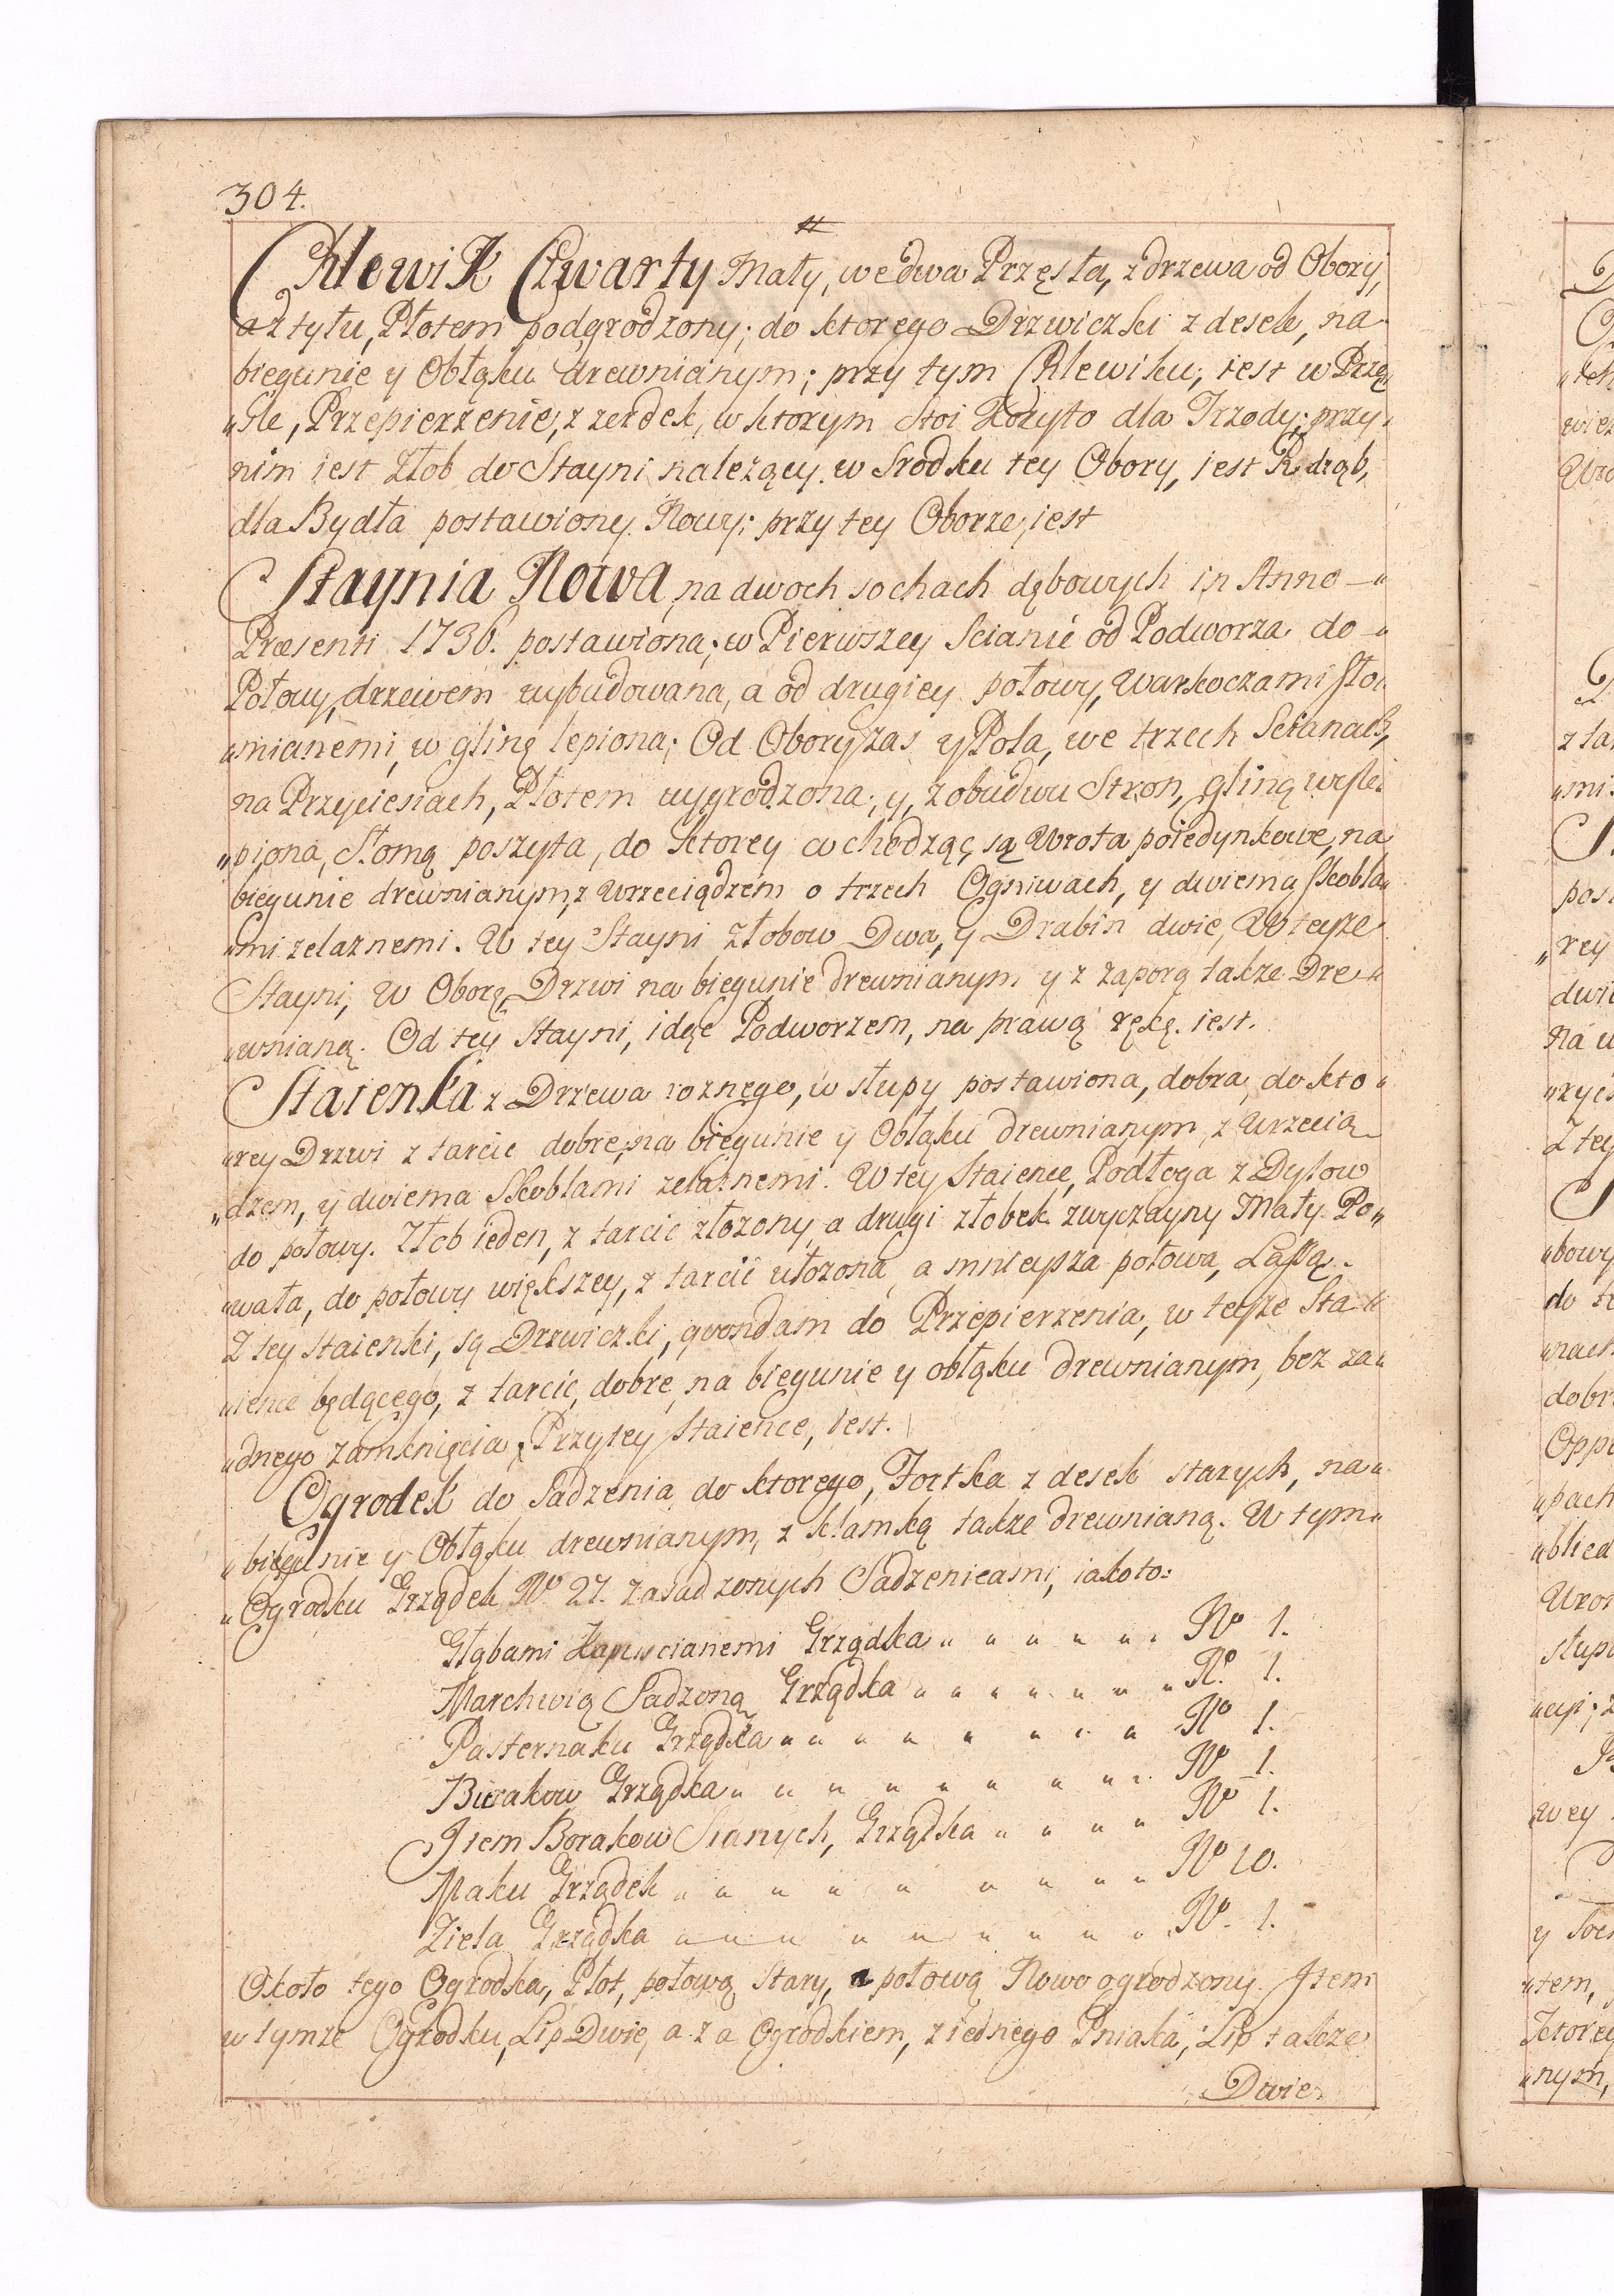 304.
#
Chlewik Czwarty Mały, we dwa Przęsła, z drzewa od Obory,
a z tyłu, Płotem podgrodzony; do ktorego Drzwiczki z desek, na
biegunie y Obłąku drewnianym; przy tym Chlewiku, iest w Przę„
„śle, Przepierzenie, z zerdek, w ktorym stoi Koryto dla Trzody; przy„
nim iest Złob do Stayni nalezący. w Srodku tey Obory, iest
dla Bydła postawiony Nowy; przy tey Oborze, iest
Staynia Nowa, na dwoch sochach dębowych in Anno —„
Præsenti 1736. postawiona; w Pierwszey Scianie od Podworza do —„
Połowy, drzewem wybudowana, a od drugiey połowy, Warkoczami sło„
„mianemi, w glinę lepiona; Od Obory zas y Pola, we trzech Scianach,
na Przyciesiach, Płotem wygrodzona, y, z obudwu Stron, gliną wyle„
„piona, Słomą poszyta, do ktorey wchodząc, są Wrota poiedynkowe, na
biegunie drewnianym, z wrzeciądzem o trzech Ogniwach, y dwiema skobla„
„mi zelaznemi. W tey Stayni Złobow Dwa, y Drabin dwie, W teyze
Stayni, w Oborę, Drzwi na biegunie drewnianym y z zaporą takze Dre„
„wnianą. Od tey Stayni, idąc Podworzem, na prawą rękę. iest.
Staienka z Drzewa roznego, w słupy postawiona, dobra, do kto„
„rey Drzwi z tarcic dobre, na biegunie y Obłąku drewnianym, z wrzecią
„dzem, y dwiema Skoblami zelaznemi. W tey Staience, Podłoga z Dylow
do połowy. Złob ieden, z tarcic złozony, a drugi złobek zwyczayny Mały. Po„
„wała, do połowy większey, z tarcic ułozona, a mnieysza połowa, Lassą.
Z tey staienki, są Drzwiczki, qvondam do Przepierzenia, w teyze Sta„
„ience będącego, z tarcic, dobre, na biegunie y obłąku drewnianym, bez za„
„dnego zamknięcia; Przy tey staience, iest.
Ogrodek do Sadzenia, do ktorego, Fortka z desek starych, na„
„biegunie y Obłąku drewnianym, z klamką takze drewnianą. W tym„
„Ogrodku Grządek No 27. zasadzonych Sadzenicami, iakoto:
Głąbami Kapuscianemi Grządka „ „ „ „ „ No 1.
Marchwią Sadzoną Grządka „ „ „ „ „ „ No 1.
Pasternaku Grządka „ „ „ „ „ „ „ No 1.
Burakow Grządka „ „ „ „ „ „ „ „ No 1.
Item Borakow Sianych, Grządka „ „ „ „ No 1.
Maku Grządek „ „ „ „ „ „ „ „ No 10.
Ziela Grządka „ „ „ „ „ „ „ „ No. 1.
Około tego Ogrodka, Płot, połową Stary, a połową Nowo ogrodzony. Item
w tymze Ogrodku, Lip Dwie, a za Ogrodkiem, z iednego Pniaka, Lip takze
Dwie